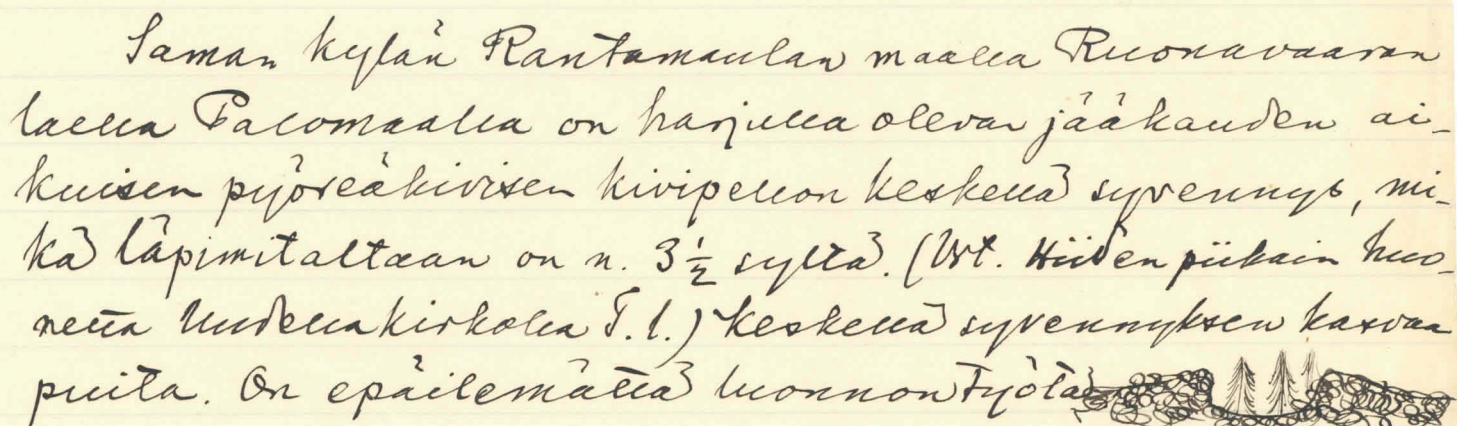 Saman kylän Rantamaulan maalla Ruonavaaran
laella Palomaalla on harjulla olevan jääkauden ai-
kuisen pyöreäkivisen kivipellon keskellä syvennys, mi-
kä läpimitaltaan on n. 3½ syltä. (Vrt. Hiiden piikain huo-
netta Uudellakirkolla T.l.) Keskellä syvennyksen kasvaa
puita. On epäilemättä luonnon työtä